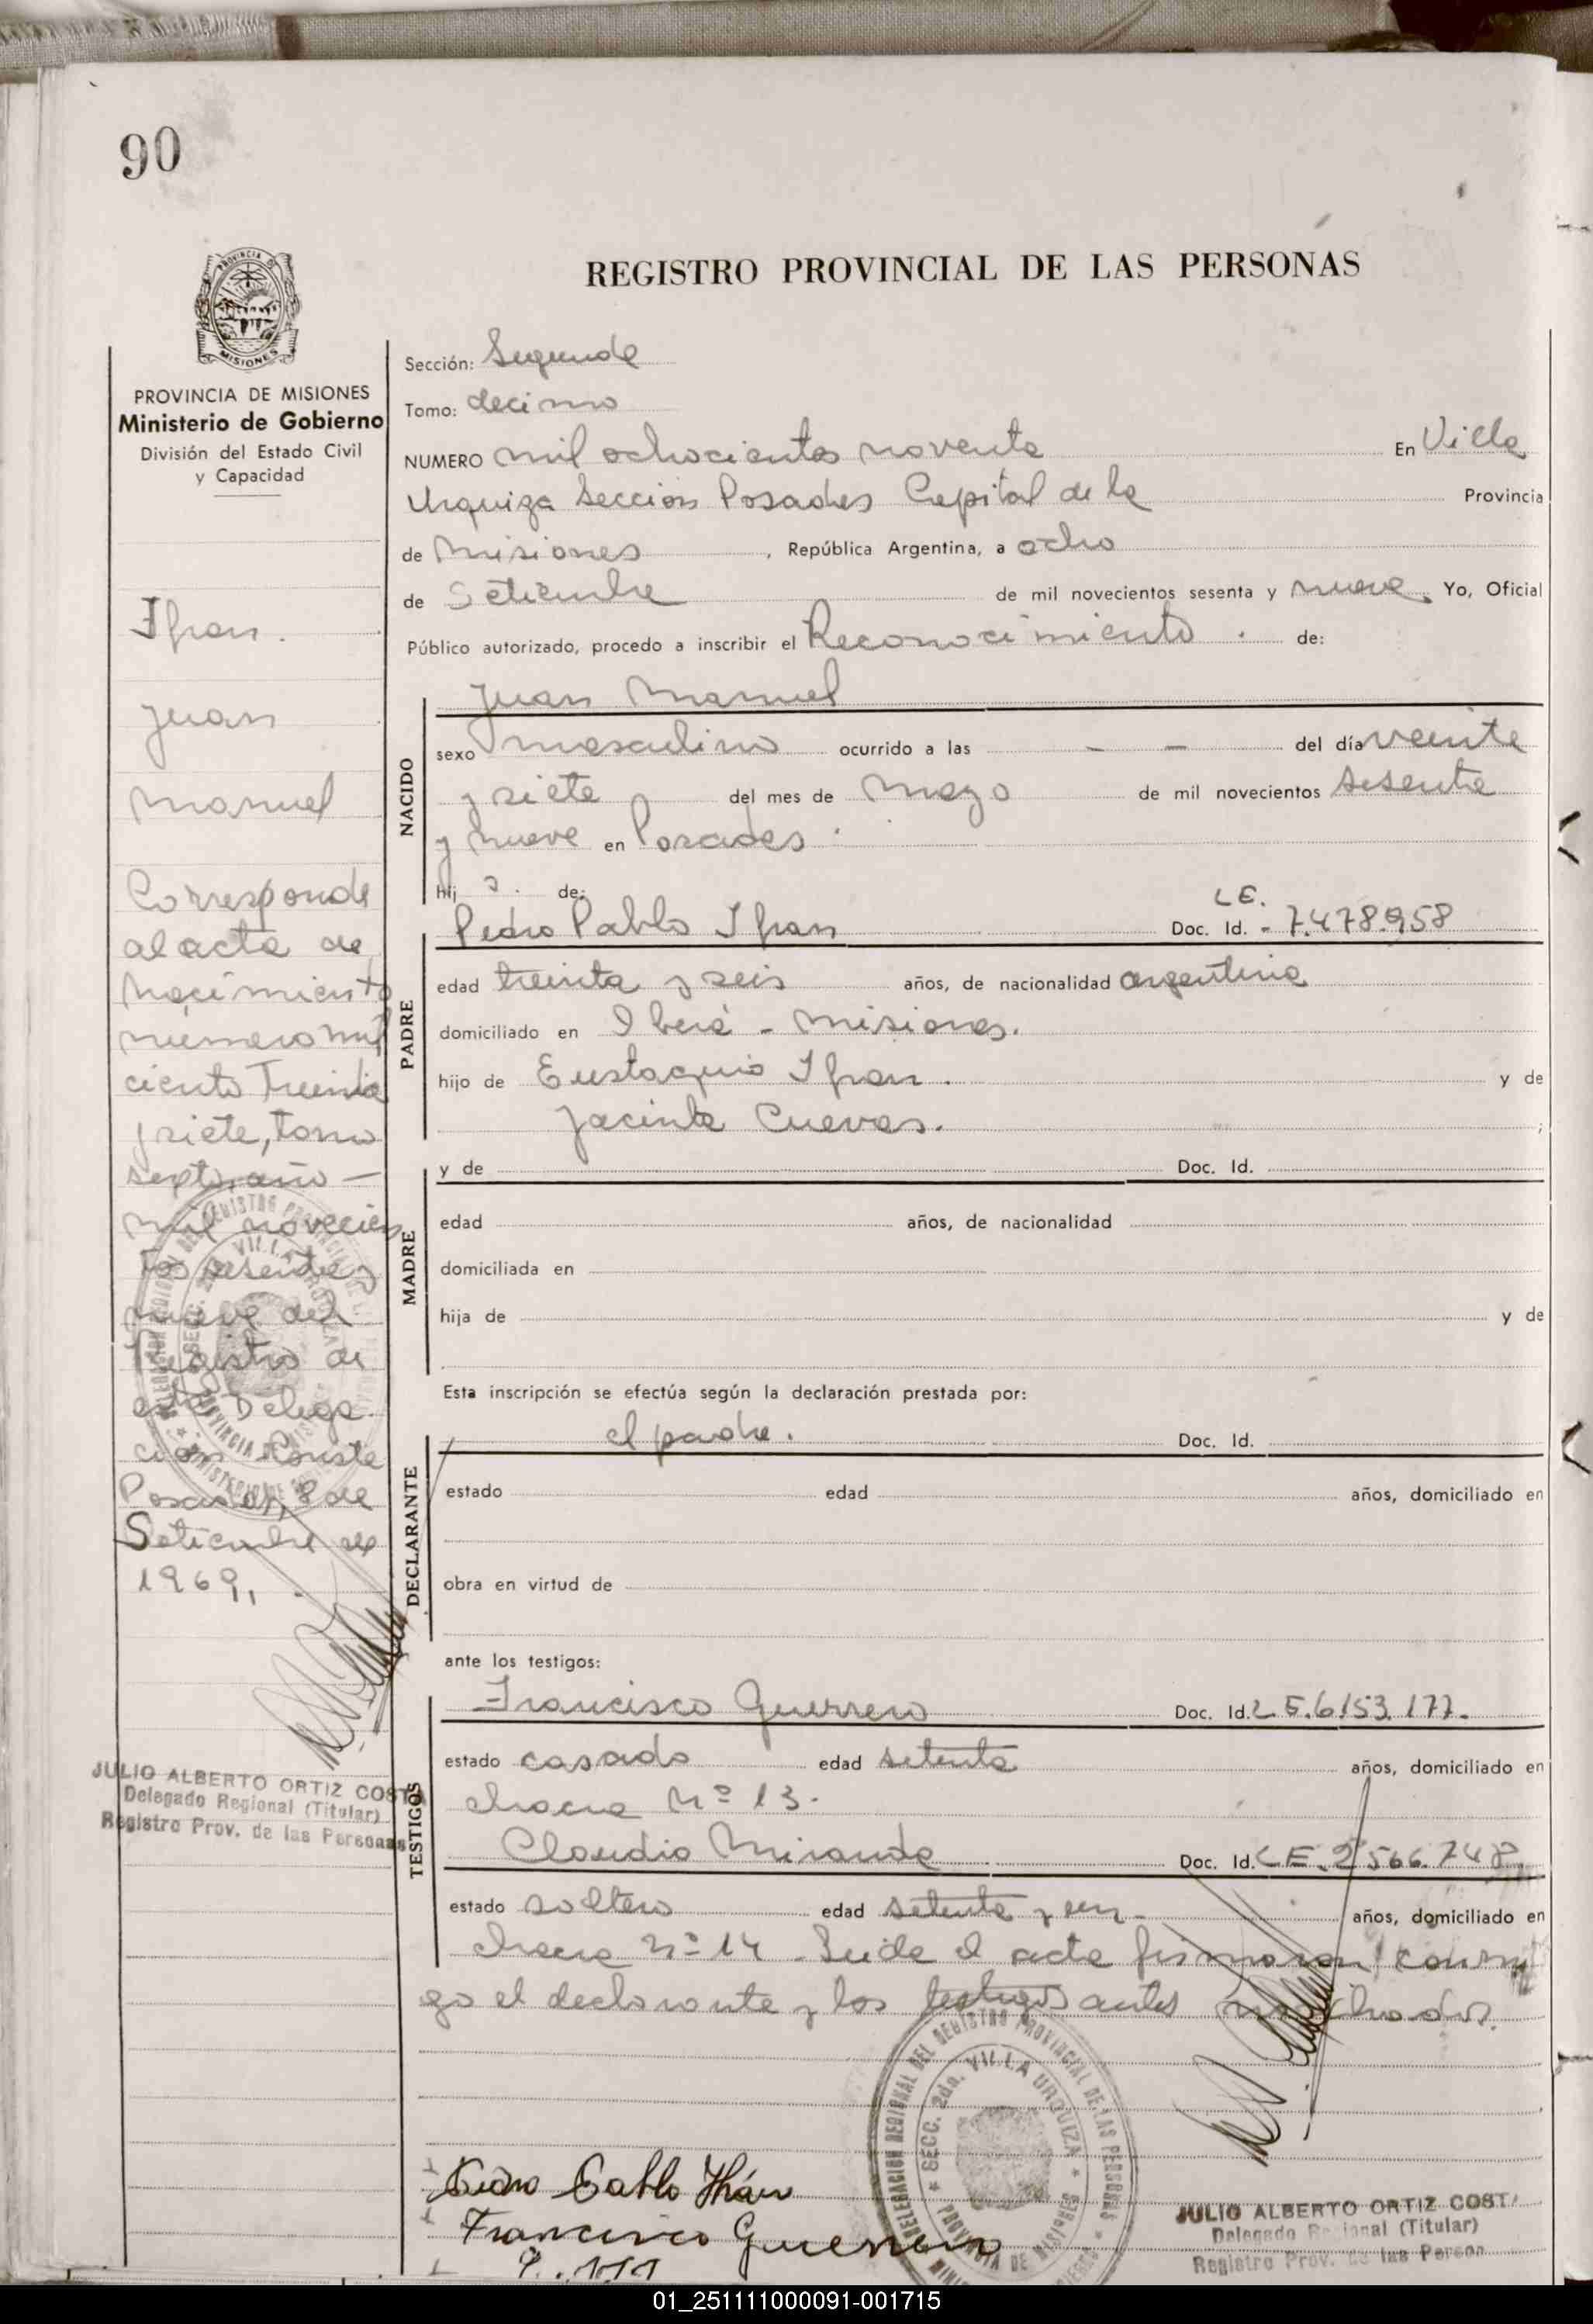 90
REGISTRO PROVINCIAL DE LAS PERSONAS
PROVINCIA DE MISIONES
Ministerio de Gobierno
División del Estado Civil
y Capacidad
Ifran.
Juan
Manuel
Corresponde
al acta de
Nacimiento
número mil
ciento Treinta
y siete, tomo
sexto, año —
mil novecien
tos sesenta y
nueve del
Registro de
esta Delega
ción. Conste
Posadas, 8 de
Setiembre de
1969,.
JULIO ALBERTO ORTIZ COSTA
Delegado Regional (Titular)
Registro Prov. de las Personas
Sección: Segunda
Tomo: decimo
NUMERO mil ochocientos noventa En Villa
Urquiza Sección Posadas Capital de la Provincia
de Misiones, República Argentina, a ocho
de Setiembre de mil novecientos sesenta y nueve. Yo, Oficial
Público autorizado, procedo a inscribir el Reconocimiento . de:
NACIDO
Juan Manuel
sexo masculino ocurrido a las - - del día veinte
y siete del mes de mayo de mil novecientos sesenta
y nueve en Posadas.
hij o. de:
PADRE
Pedro Pablo Ifran Doc. Id. - L.E. 7.478.958
edad treinta y seis años, de nacionalidad argentina
domiciliado en Iberá - Misiones.
hijo de Eustaquio Ifran. y de
Jacinta Cuevas. ;
MADRE
y de Doc. Id.
edad años, de nacionalidad
domiciliada en
hija de y de
Esta inscripción se efectúa según la declaración prestada por:
DECLARANTE
el padre. Doc. Id.
estado edad años, domiciliado en
obra en virtud de
ante los testigos:
TESTIGOS
Francisco Guerrero Doc. Id. L.E. 6.153.177.
estado casado edad setenta años, domiciliado en
chacra Nº 13.
Claudio Miranda Doc. Id. L.E. 2.566.748
estado soltero edad setenta y un años, domiciliado en
chacra nº 14 - Leida el acta firmaron conmi
go el declarante y los testigos antes
DELEGACION REGIONAL DEL REGISTRO PROVINCIAL DE LAS PERSONAS
SECC. 2da. VILLA URQUIZA
PROVINCIA DE MISIONES
Pedro Pablo Ifrán
Francisco Guerrero
JULIO ALBERTO ORTIZ COSTA
Delegado Regional (Titular)
Registro Prov. de las Person
01_251111000091-001715